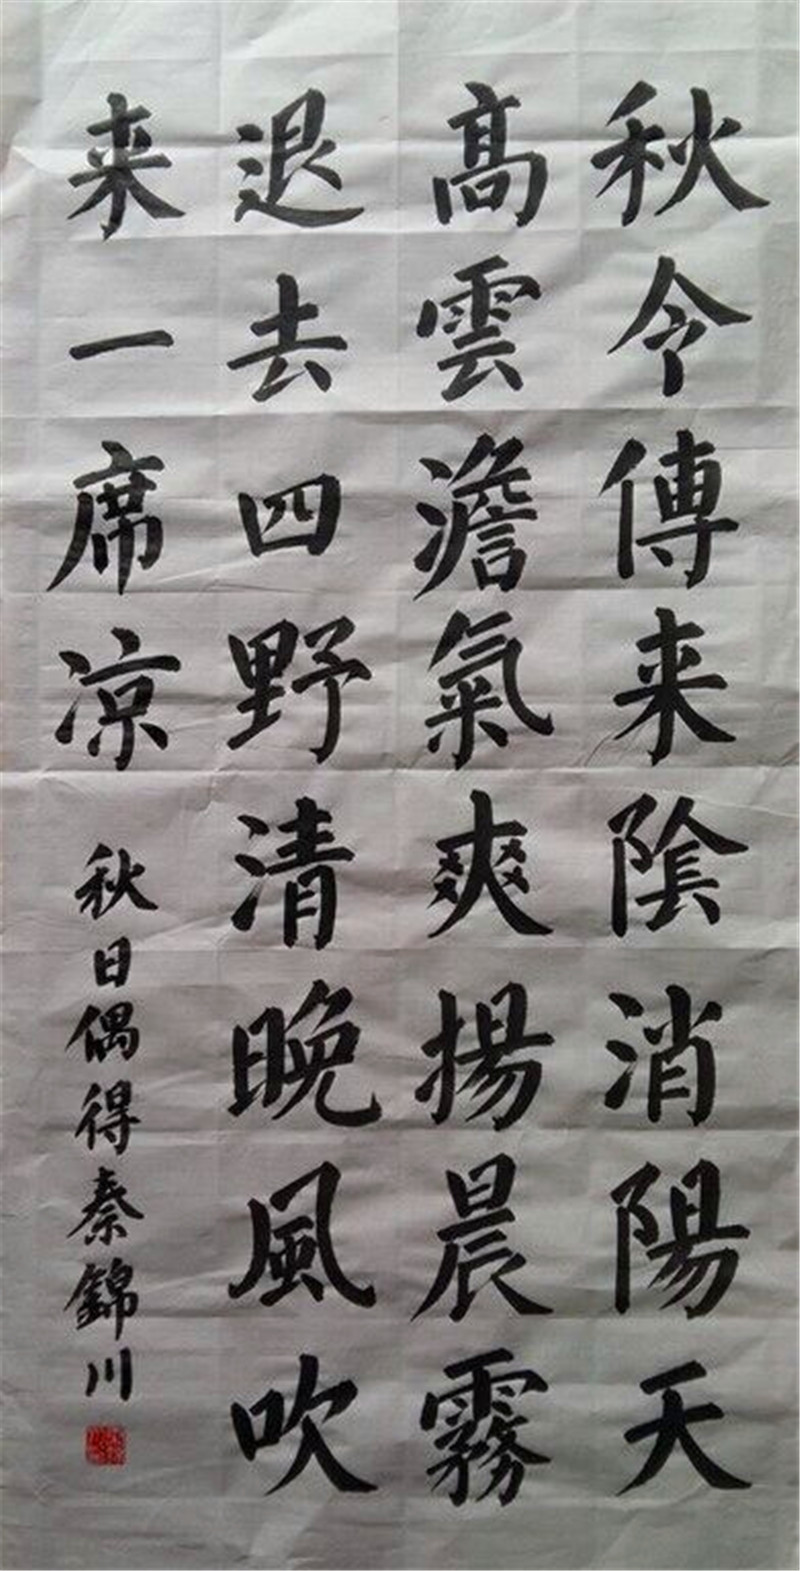 秋令傳来陰消陽天
髙雲澹氣爽揚晨霧
退去四野清晚風吹
来一席凉
秋日偶得秦錦川